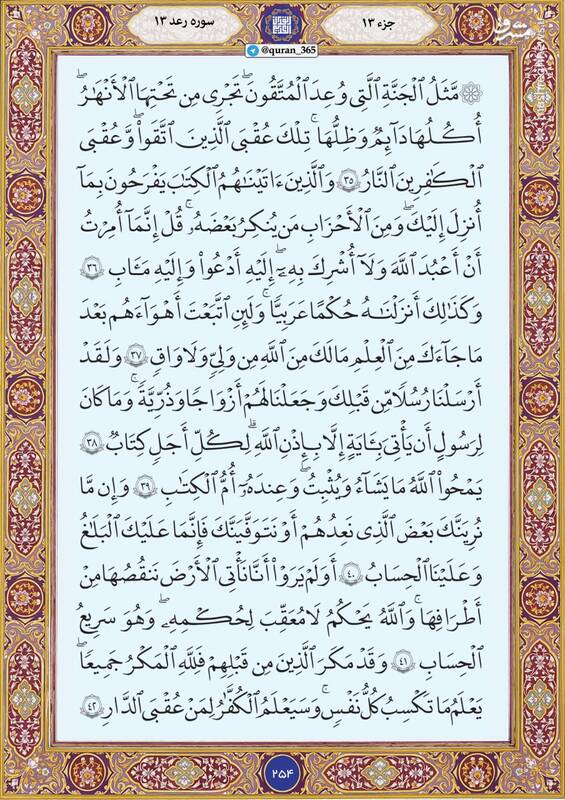 سوره رعد ۱۳
جزء ۱۳
مشرق
@quran_365
۞ مَّثَلُ ٱلۡجَنَّةِ ٱلَّتِي وُعِدَ ٱلۡمُتَّقُونَۖ تَجۡرِي مِن تَحۡتِهَا ٱلۡأَنۡهَٰرُۖ
أُكُلُهَا دَآئِمٞ وَظِلُّهَاۚ تِلۡكَ عُقۡبَى ٱلَّذِينَ ٱتَّقَواْۖ وَّعُقۡبَى
ٱلۡكَٰفِرِينَ ٱلنَّارُ ٣٥ وَٱلَّذِينَ ءَاتَيۡنَٰهُمُ ٱلۡكِتَٰبَ يَفۡرَحُونَ بِمَآ
أُنزِلَ إِلَيۡكَۖ وَمِنَ ٱلۡأَحۡزَابِ مَن يُنكِرُ بَعۡضَهُۥۚ قُلۡ إِنَّمَآ أُمِرۡتُ
أَنۡ أَعۡبُدَ ٱللَّهَ وَلَآ أُشۡرِكَ بِهِۦٓۚ إِلَيۡهِ أَدۡعُواْ وَإِلَيۡهِ مَـَٔابِ ٣٦
وَكَذَٰلِكَ أَنزَلۡنَٰهُ حُكۡمًا عَرَبِيّٗاۚ وَلَئِنِ ٱتَّبَعۡتَ أَهۡوَآءَهُم بَعۡدَ
مَا جَآءَكَ مِنَ ٱلۡعِلۡمِ مَا لَكَ مِنَ ٱللَّهِ مِن وَلِيّٖ وَلَا وَاقٖ ٣٧ وَلَقَدۡ
أَرۡسَلۡنَا رُسُلٗا مِّن قَبۡلِكَ وَجَعَلۡنَا لَهُمۡ أَزۡوَٰجٗا وَذُرِّيَّةٗۚ وَمَا كَانَ
لِرَسُولٍ أَن يَأۡتِيَ بِـَٔايَةٍ إِلَّا بِإِذۡنِ ٱللَّهِۗ لِكُلِّ أَجَلٖ كِتَابٞ ٣٨
يَمۡحُواْ ٱللَّهُ مَا يَشَآءُ وَيُثۡبِتُۖ وَعِندَهُۥٓ أُمُّ ٱلۡكِتَٰبِ ٣٩ وَإِن مَّا
نُرِيَنَّكَ بَعۡضَ ٱلَّذِي نَعِدُهُمۡ أَوۡ نَتَوَفَّيَنَّكَ فَإِنَّمَا عَلَيۡكَ ٱلۡبَلَٰغُ
وَعَلَيۡنَا ٱلۡحِسَابُ ٤٠ أَوَلَمۡ يَرَوۡاْ أَنَّا نَأۡتِي ٱلۡأَرۡضَ نَنقُصُهَا مِنۡ
أَطۡرَافِهَاۚ وَٱللَّهُ يَحۡكُمُ لَا مُعَقِّبَ لِحُكۡمِهِۦۚ وَهُوَ سَرِيعُ
ٱلۡحِسَابِ ٤١ وَقَدۡ مَكَرَ ٱلَّذِينَ مِن قَبۡلِهِمۡ فَلِلَّهِ ٱلۡمَكۡرُ جَمِيعٗاۖ
يَعۡلَمُ مَا تَكۡسِبُ كُلُّ نَفۡسٖۗ وَسَيَعۡلَمُ ٱلۡكُفَّٰرُ لِمَنۡ عُقۡبَى ٱلدَّارِ ٤٢
۲۵۴